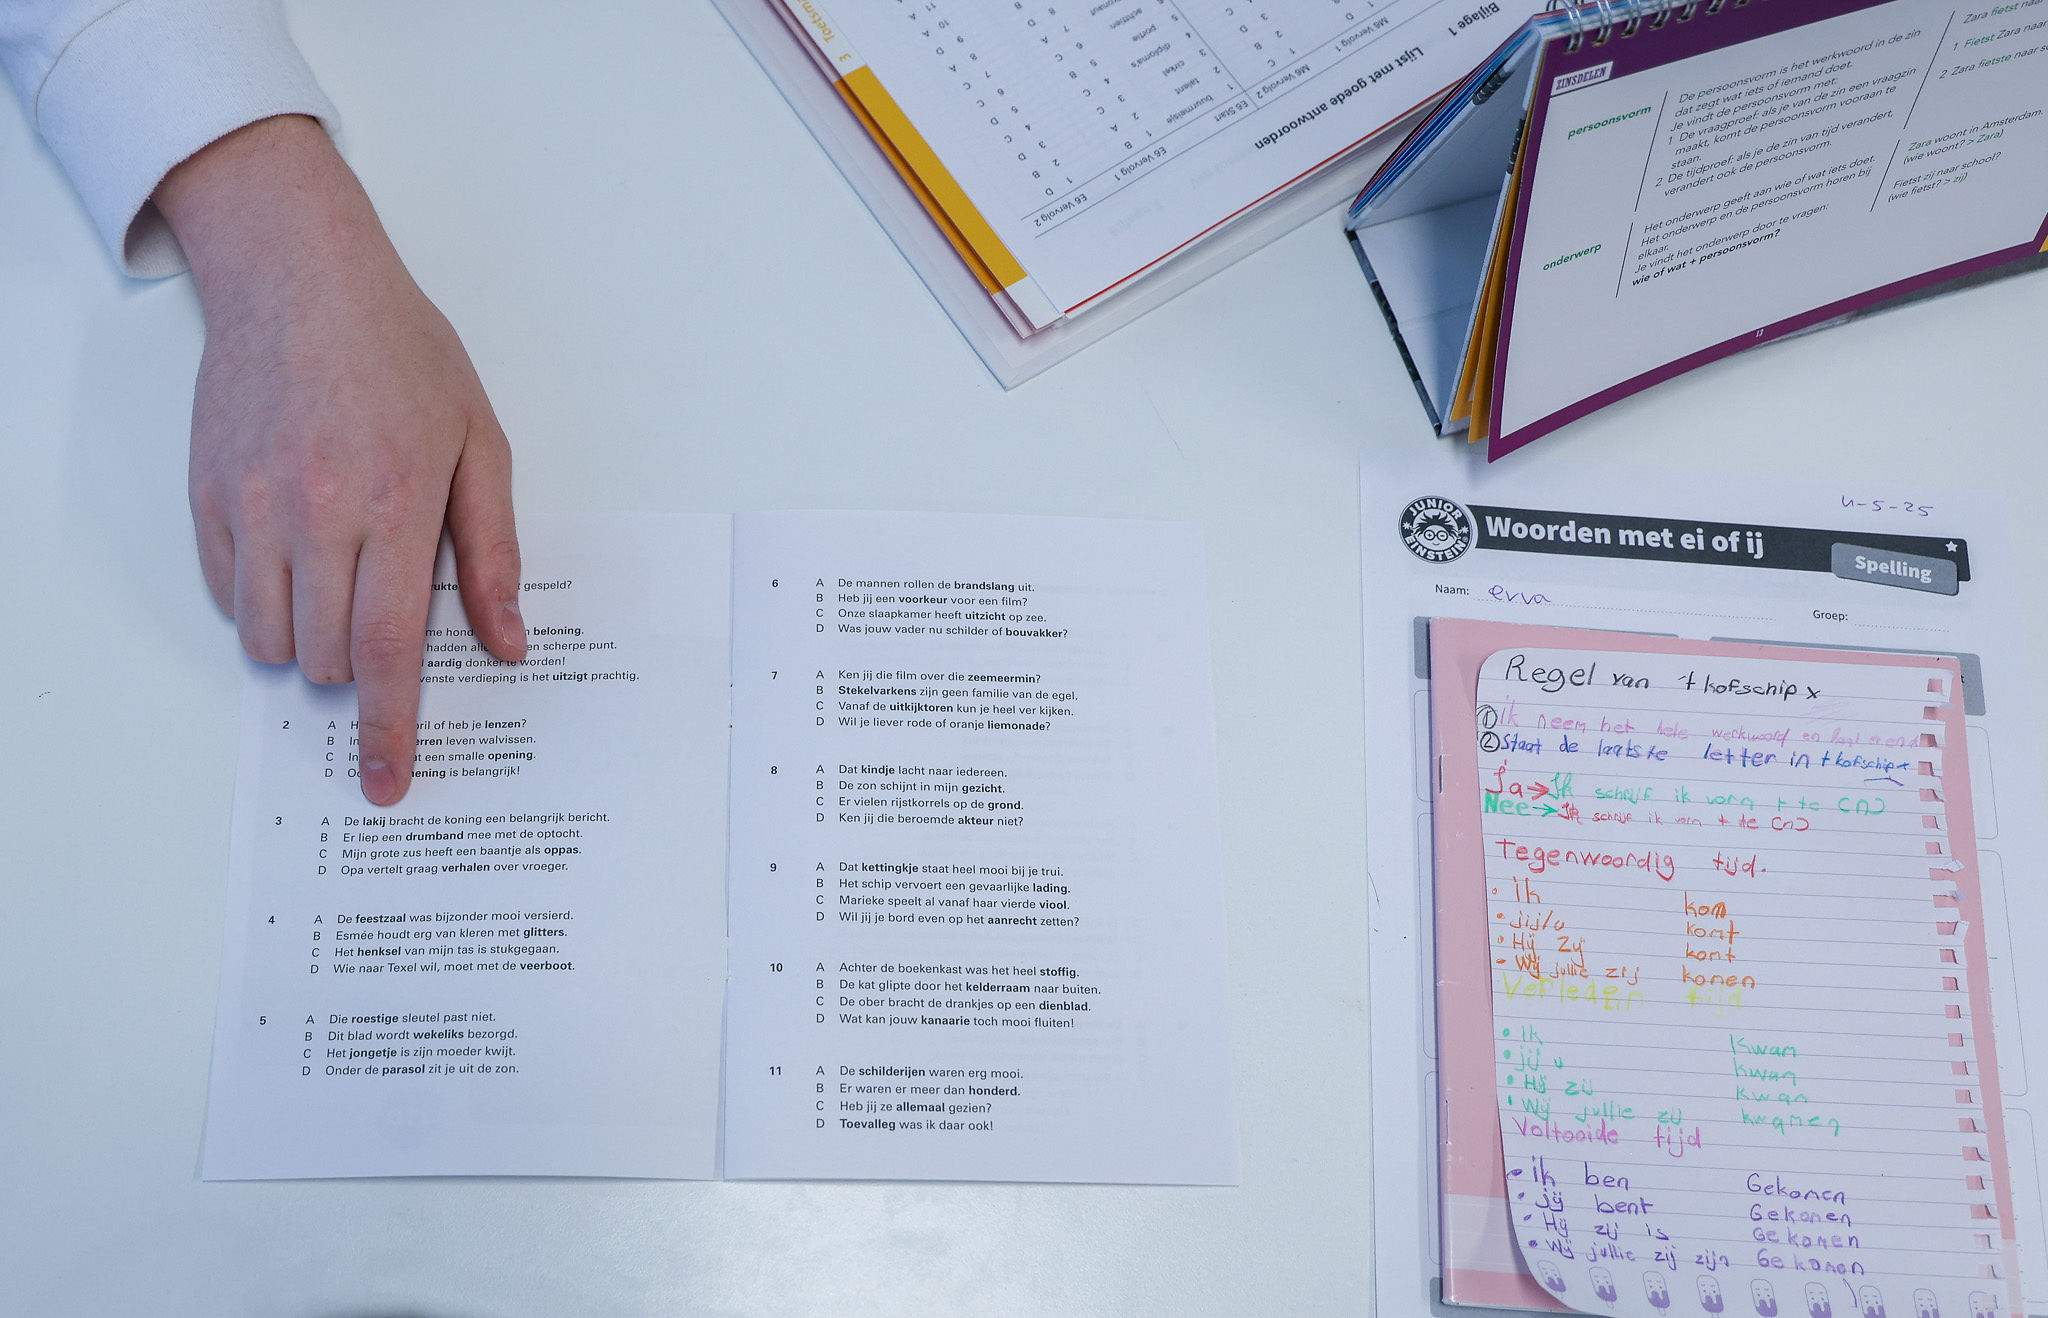 3 Toetsma
Bijlage 1
Lijst met goede antwoorden
M6 Vervolg 1
M6 Vervolg 2
E6 Start
E6 Vervolg 1
E6 Vervolg 2
1 buurmeisje
2 talent
3 cirkel
4 diploma's
5 portie
6 achttien
ZINSDELEN
persoonsvorm
De persoonsvorm is het werkwoord in de zin
dat zegt wat iets of iemand doet.
Je vindt de persoonsvorm met:
1 De vraagproef: als je van de zin een vraagzin
maakt, komt de persoonsvorm vooraan te
staan.
2 De tijdproef: als je de zin van tijd verandert,
verandert ook de persoonsvorm.
Zara fietst naar
1 Fietst Zara naar
2 Zara fietste naar
onderwerp
Het onderwerp geeft aan wie of wat iets doet.
Het onderwerp en de persoonsvorm horen bij
elkaar.
Je vindt het onderwerp door te vragen:
wie of wat + persoonsvorm?
Zara woont in Amsterdam.
(wie woont? > Zara)
Fietst zij naar school?
(wie fietst? > zij)
13
gespeld?
me hond beloning.
hadden en scherpe punt.
aardig donker te worden!
venste verdieping is het uitzigt prachtig.
2 A bril of heb je lenzen?
B leven walvissen.
C een smalle opening.
D is belangrijk!
3 A De lakij bracht de koning een belangrijk bericht.
B Er liep een drumband mee met de optocht.
C Mijn grote zus heeft een baantje als oppas.
D Opa vertelt graag verhalen over vroeger.
4 A De feestzaal was bijzonder mooi versierd.
B Esmée houdt erg van kleren met glitters.
C Het henksel van mijn tas is stukgegaan.
D Wie naar Texel wil, moet met de veerboot.
5 A Die roestige sleutel past niet.
B Dit blad wordt wekeliks bezorgd.
C Het jongetje is zijn moeder kwijt.
D Onder de parasol zit je uit de zon.
6 A De mannen rollen de brandslang uit.
B Heb jij een voorkeur voor een film?
C Onze slaapkamer heeft uitzicht op zee.
D Was jouw vader nu schilder of bouvakker?
7 A Ken jij die film over die zeemeermin?
B Stekelvarkens zijn geen familie van de egel.
C Vanaf de uitkijktoren kun je heel ver kijken.
D Wil je liever rode of oranje liemonade?
8 A Dat kindje lacht naar iedereen.
B De zon schijnt in mijn gezicht.
C Er vielen rijstkorrels op de grond.
D Ken jij die beroemde akteur niet?
9 A Dat kettingkje staat heel mooi bij je trui.
B Het schip vervoert een gevaarlijke lading.
C Marieke speelt al vanaf haar vierde viool.
D Wil jij je bord even op het aanrecht zetten?
10 A Achter de boekenkast was het heel stoffig.
B De kat glipte door het kelderraam naar buiten.
C De ober bracht de drankjes op een dienblad.
D Wat kan jouw kanaarie toch mooi fluiten!
11 A De schilderijen waren erg mooi.
B Er waren er meer dan honderd.
C Heb jij ze allemaal gezien?
D Toevalleg was ik daar ook!
4-5-25
JUNIOR EINSTEIN
Woorden met ei of ij
Spelling
Naam: evva
Groep:
Regel van 't kofschip x
① ik neem het hele werkwoord en
② Staat de laatste letter in t kofschip x
Ja → Ik schrijf ik vorm + te (n)
Nee → Ik schrijf ik vorm + de (n)
Tegenwoordig tijd.
• ik kom
• jij/u komt
• Hij Zij komt
• Wij jullie zij komen
Verleden tijd
• Ik kwam
• jij u kwam
• Hij zij kwam
• Wij jullie zij kwamen
Voltooide tijd
• ik ben Gekomen
• jij bent Gekomen
• Hij zij is Gekomen
• Wij jullie zij zijn Gekomen